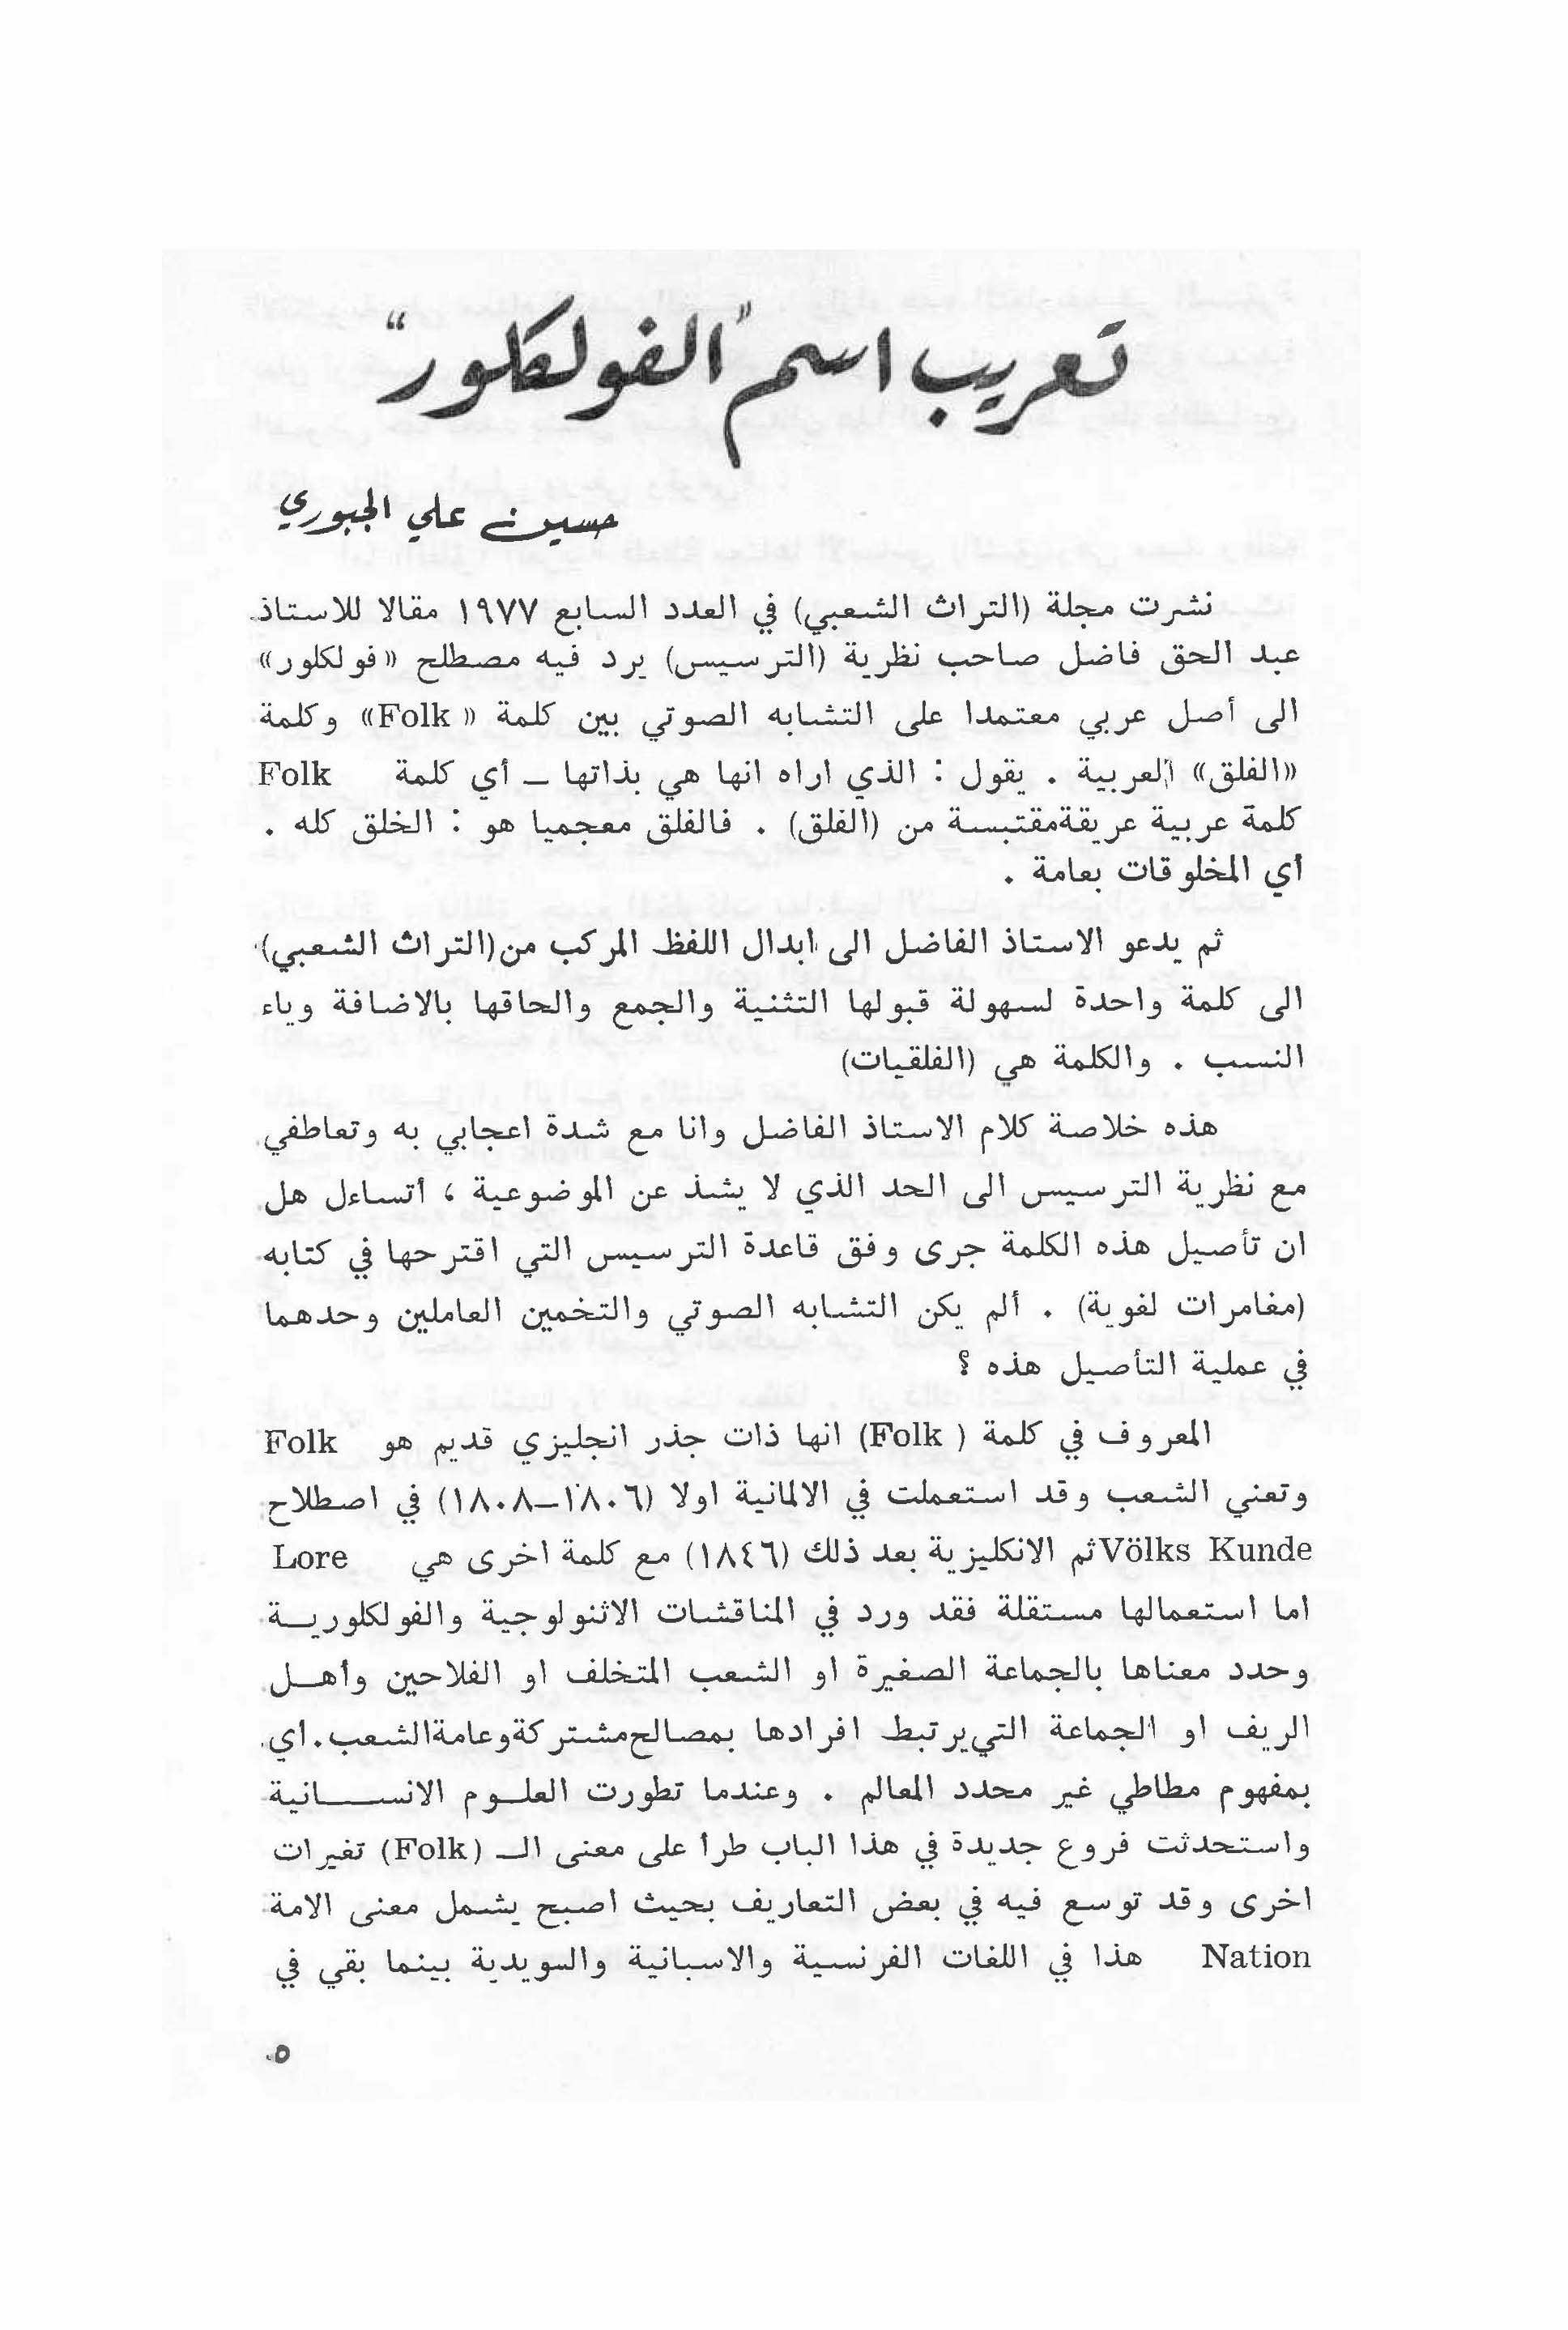 تعريب اسم "الفولكلور"
حسين علي الجبوري
نشرت مجلة (التراث الشعبي) في العدد السابع ١٩٧٧ مقالا للاستاذ
عبد الحق فاضل صاحب نظرية (الترسيس) يرد فيه مصطلح «فولكلور»
الى أصل عربي معتمدا على التشابه الصوتي بين كلمة «Folk» وكلمة
«الفلق» العربية . يقول : الذي اراه انها هي بذاتها ـ أي كلمة Folk
كلمة عربية عريقةمقتبسة من (الفلق) . فالفلق معجميا هو : الخلق كله .
أي المخلوقات بعامة .
ثم يدعو الاستاذ الفاضل الى ابدال اللفظ المركب من(التراث الشعبي)
الى كلمة واحدة لسهولة قبولها التثنية والجمع والحاقها بالاضافة وياء
النسب . والكلمة هي (الفلقيات)
هذه خلاصة كلام الاستاذ الفاضل وانا مع شدة اعجابي به وتعاطفي
مع نظرية الترسيس الى الحد الذي لا يشذ عن الموضوعية ، أتساءل هل
ان تأصيل هذه الكلمة جرى وفق قاعدة الترسيس التي اقترحها في كتابه
(مغامرات لغوية) . ألم يكن التشابه الصوتي والتخمين العاملين وحدهما
في عملية التأصيل هذه ؟
المعروف في كلمة (Folk) انها ذات جذر انجليزي قديم هو Folk
وتعني الشعب وقد استعملت في الالمانية اولا (١٨٠٦ـ١٨٠٨) في اصطلاح
Völks Kunde ثم الانكليزية بعد ذلك (١٨٤٦) مع كلمة اخرى هي Lore
اما استعمالها مستقلة فقد ورد في المناقشات الاثنولوجية والفولكلوريـة
وحدد معناها بالجماعة الصغيرة او الشعب المتخلف او الفلاحين وأهـل
الريف او الجماعة التي‌يرتبط افرادها بمصالح‌مشتركةوعامةالشعب.أي
بمفهوم مطاطي غير محدد المعالم . وعندما تطورت العلـوم الانســانية
واستحدثت فروع جديدة في هذا الباب طرأ على معنى الـ (Folk) تغيرات
اخرى وقد توسع فيه في بعض التعاريف بحيث اصبح يشمل معنى الامة
Nation هذا في اللغات الفرنسية والاسبانية والسويدية بينما بقي في
٥